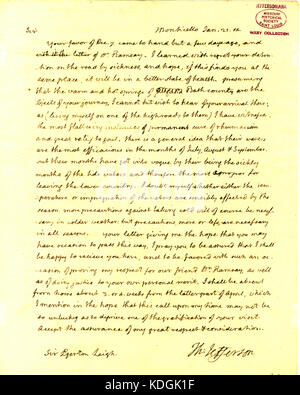 Sir Monticello Jan. 21.
Your favor of Dec. 9. came to hand but a few days ago, and
with it the letter of Dr Ramsay. I learned with regret your deten-
tion on the road by sickness and hope, if this finds you at the
same place, it will be in a better state of health. presuming
that the warm and hot springs of Bath county are the
objects of your journey, I cannot but wish to hear of your arrival there;
as (living myself on one of the high roads to them) I have witnessed
the most flattering evidences of permanent cure of rheumatism
and great relief to gout. there is a general idea that their waters
are the most efficacious in the months of July, August & September.
but these months have got into vogue by their being the sickly
months of the tide waters and therefore the most apropos for
leaving the lower country. I doubt myself whether either the tem-
perature or impregnation of the waters are sensibly affected by the
season. more precautions against taking cold will of course be neces-
sary, in colder weather but precautions more or less are necessary
in all seasons. your letter giving me the hope that you may
have occasion to pass this way, I pray you to be assured that I shall
be happy to recieve you here, and to be favored with such an oc-
casion of proving my respect for our friend Dr Ramsay, as well
as of doing justice to your own personal merit. I shall be absent
from home about 3. or 4 weeks from the latter part of April, which
I mention in the hope that this call upon my time may not be
so unlucky as to deprive me of the gratification of your visit.
Accept the assurance of my great respect & consideration.
Th: Jefferson
Sir Egerton Leigh.
JEFFERSONIANA
MISSOURI
HISTORICAL
SOCIETY
BIXBY COLLECTION
alamy